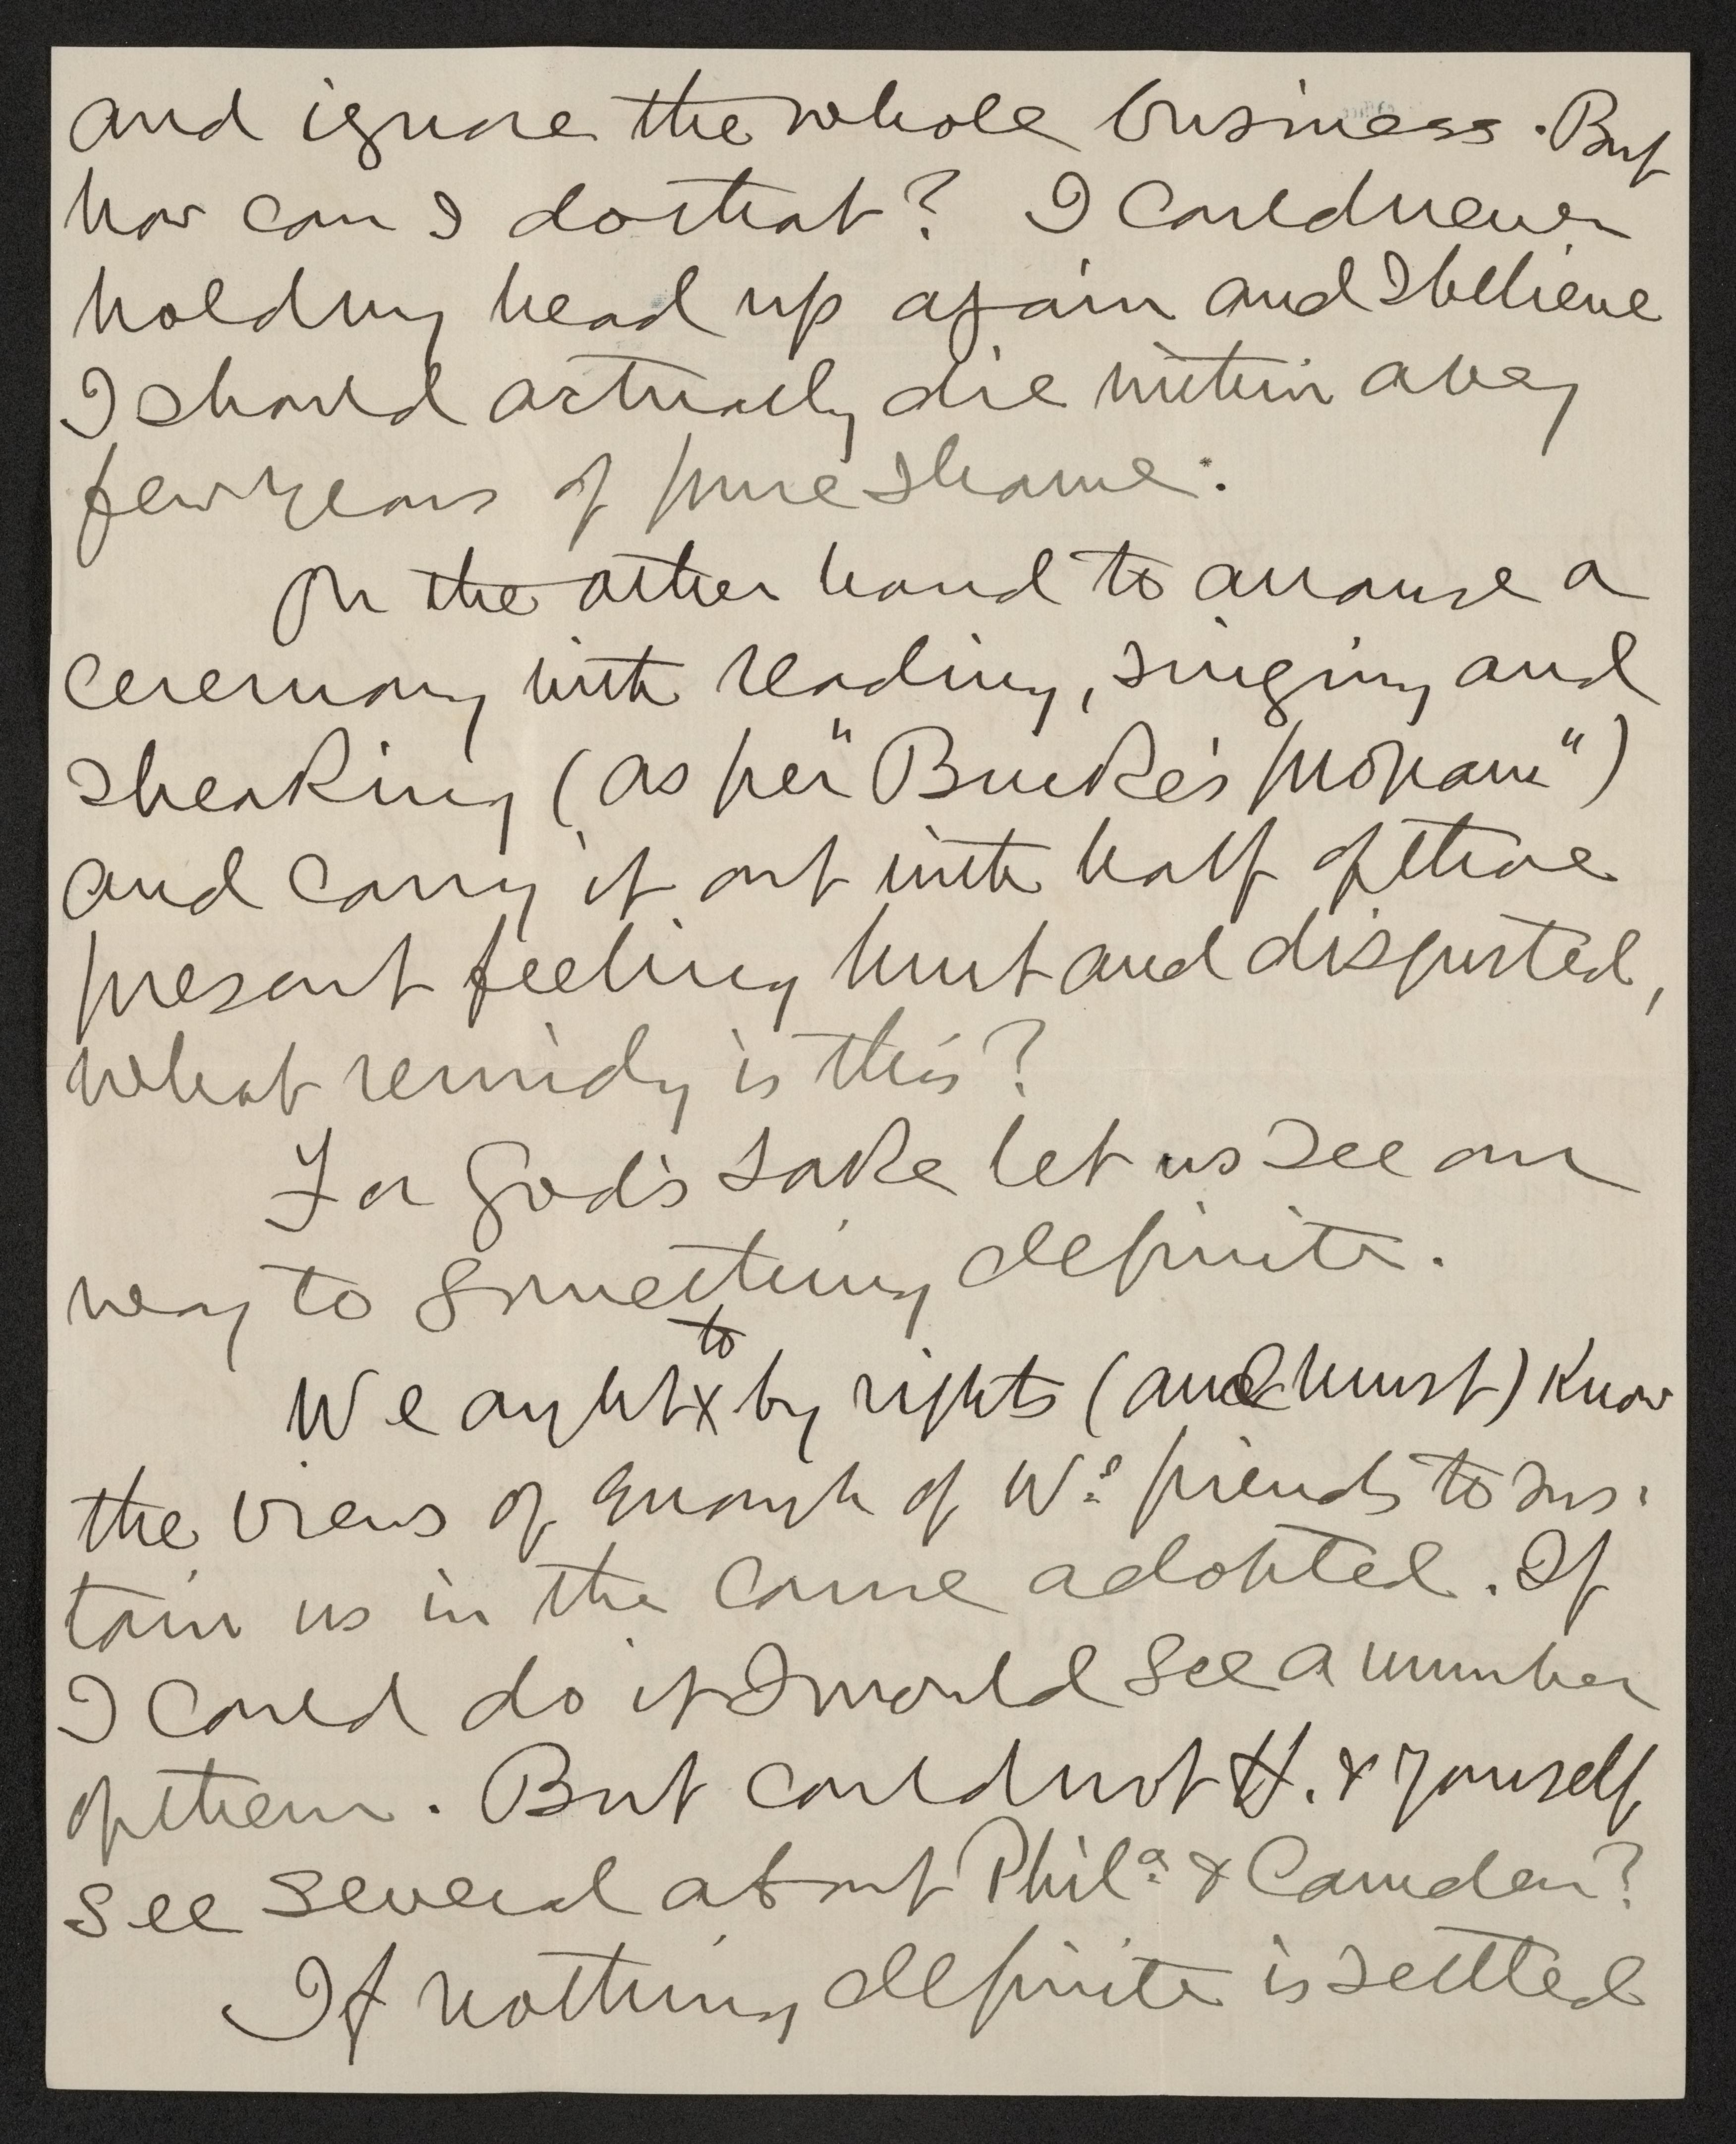 and ignore the whole business. But
how can I do that? I could never
hold my head up again and I believe
I should actually die within a very
few years of pure shame.
On the other hand to arrange a
ceremony with reading, singing and
speaking (as per "Bucke's program")
and carry it out with half of those
present feeling hurt and disgusted,
what remidy is this?
For God's sake let us see our
way to something definite.
to
We ought x by rights (and must) know
the views of enough of W.s friends to sus-
tain us in the course adopted. If
I could do it I would see a number
of them. But could not H. & yourself
see several about Phil.a & Camden?
If nothing definite is settled